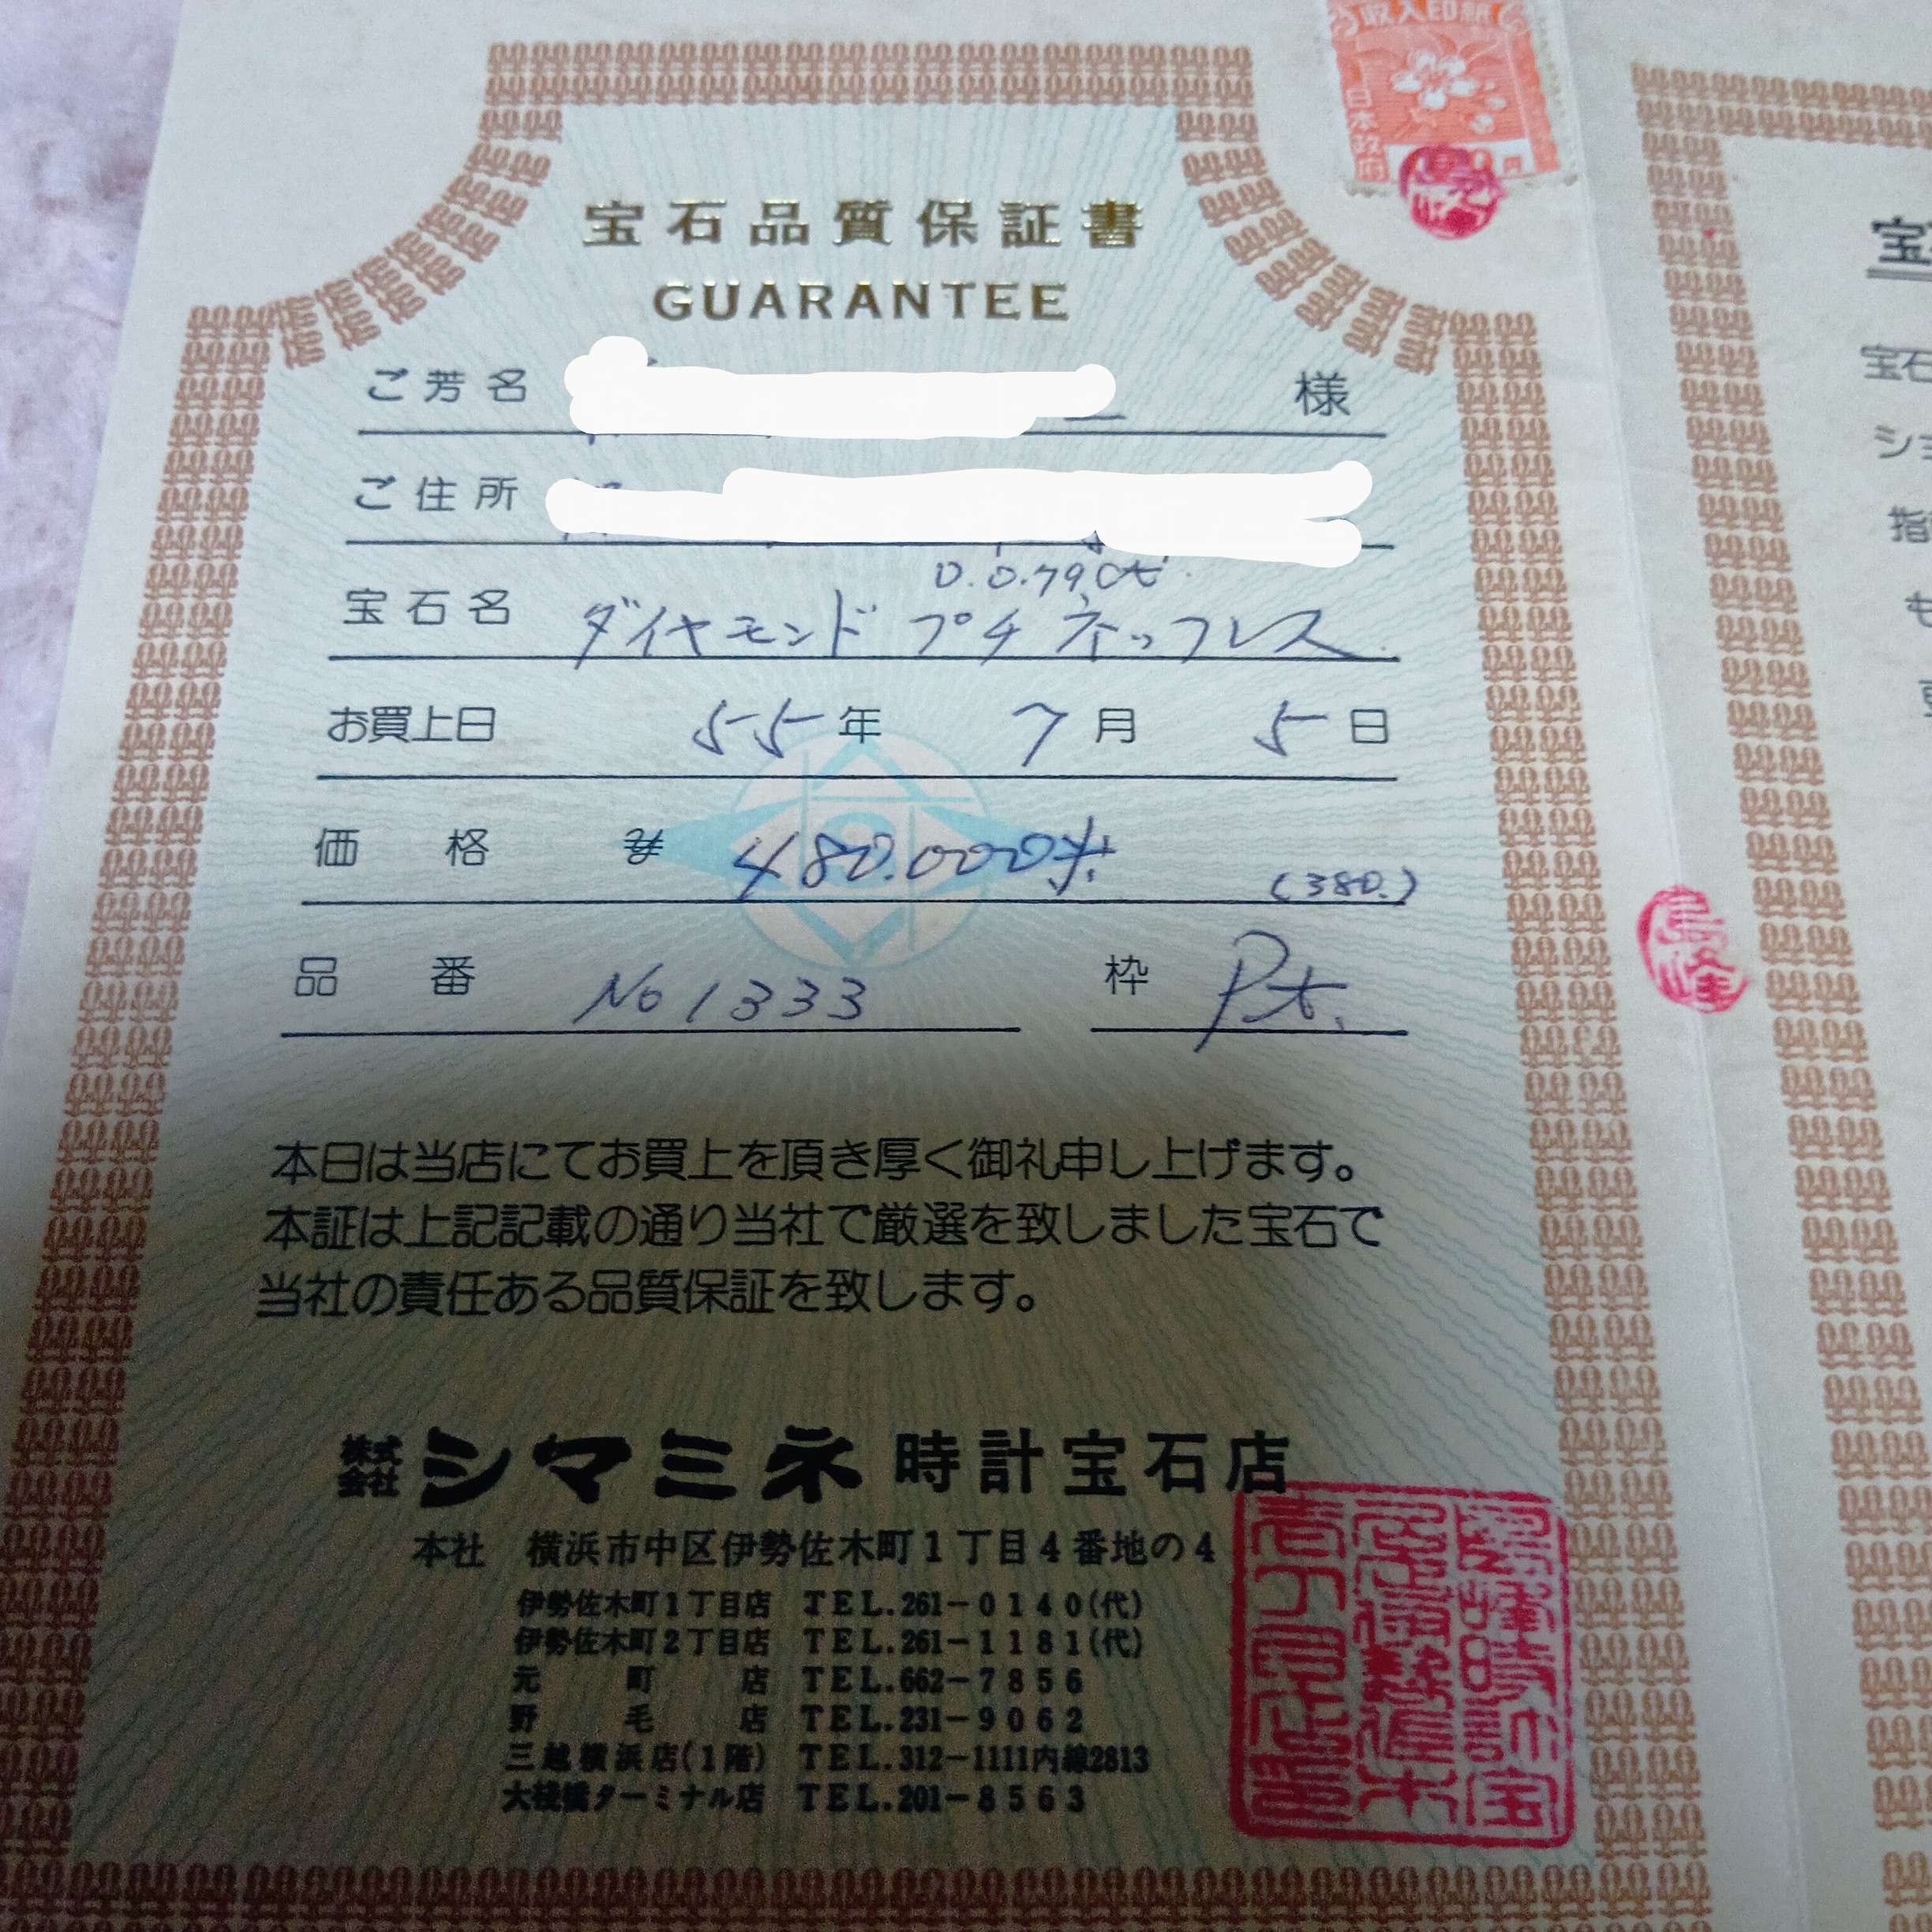 収入印紙
日本政府
宝石品質保証書
GUARANTEE
ご芳名 様
ご住所
D. 0.79ct.
宝石名 ダイヤモンド プチネックレス.
お買上日 55年 7月 5日
価格 ¥ 480.000
(380.)
品番 No 1333 枠 Pt.
本日は当店にてお買上を頂き厚く御礼申し上げます。
本証は上記記載の通り当社で厳選を致しました宝石で
当社の責任ある品質保証を致します。
株式会社 シマミネ 時計宝石店
本社 横浜市中区伊勢佐木町1丁目4番地の4
伊勢佐木町1丁目店 TEL.261-0140(代)
伊勢佐木町2丁目店 TEL.261-1181(代)
元町店 TEL.662-7856
野毛店 TEL.231-9062
三越横浜店(1階) TEL.312-1111内線2813
大桟橋ターミナル店 TEL.201-8563
宝
宝石
指